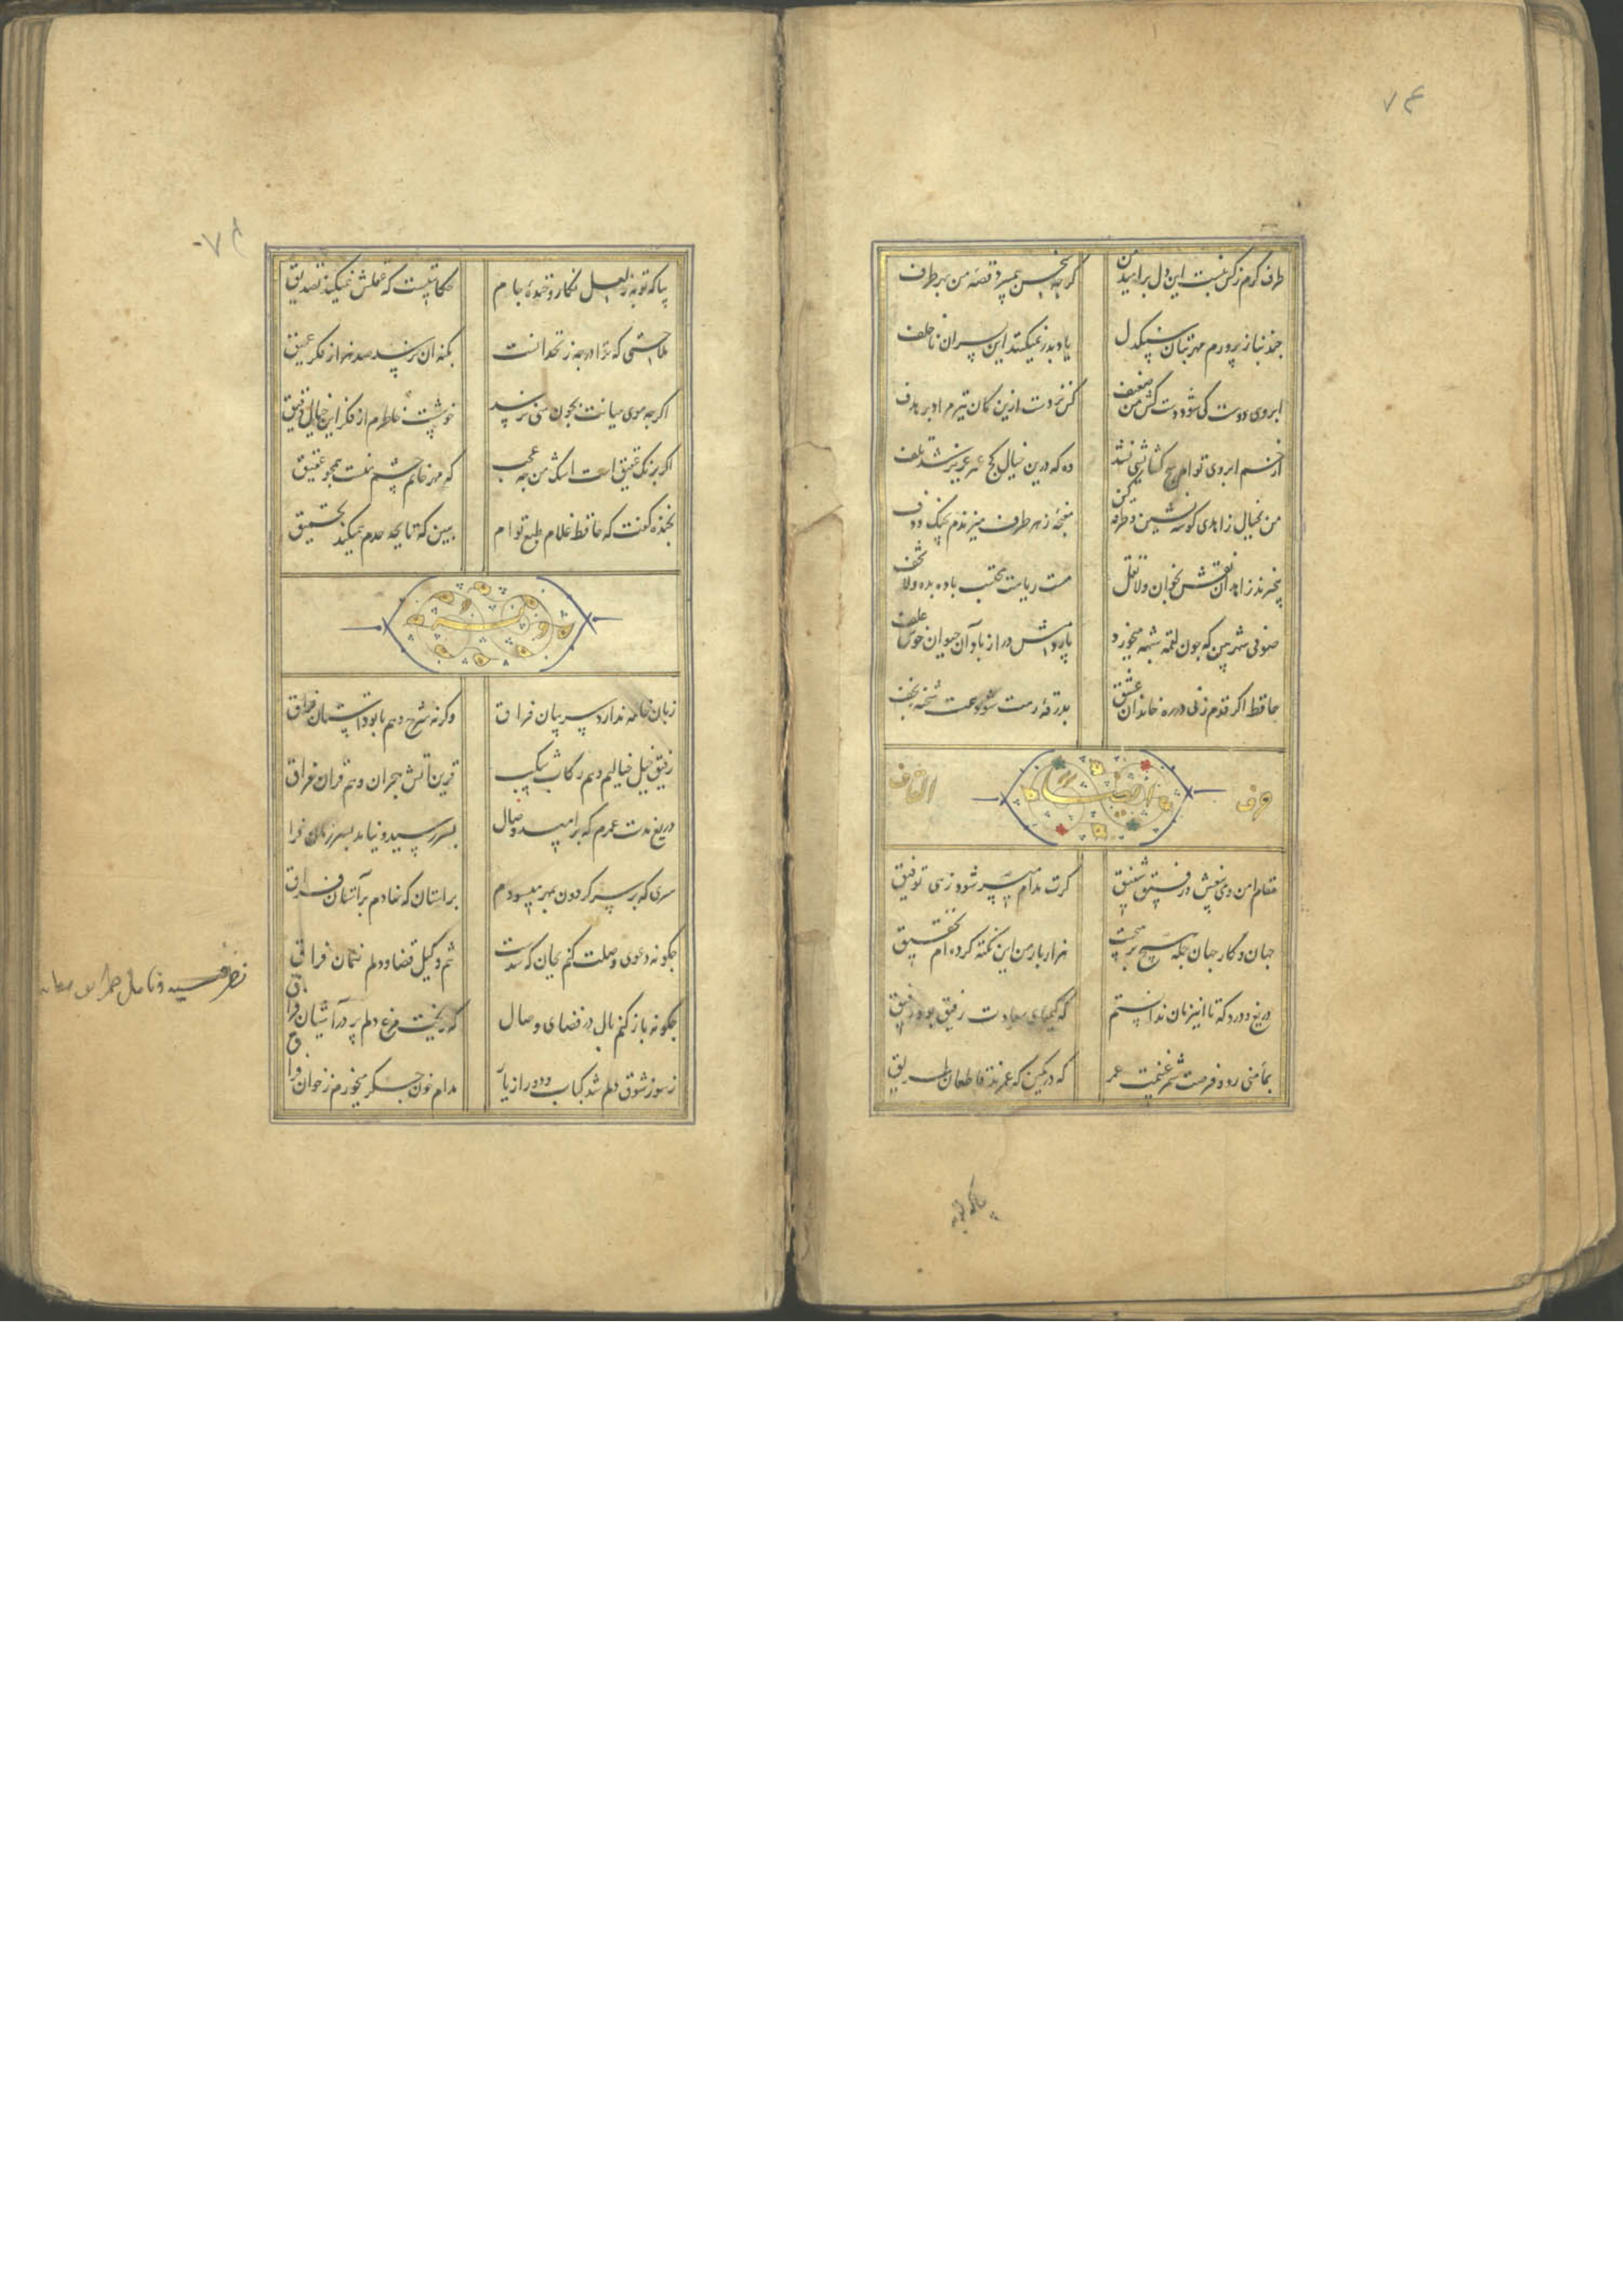 طرف کرم ز کس نبست این دل پر امید من
کرچه سخن همیبرد قصه من بهر طرف
چند بناز پرورم مهر بتان سنگدل
یاد پدر نمیکنند این پسران ناخلف
ابروی دوست کی شود دست کش من ضعیف
کس نزدست ازین کمان تیر مراد بر هدف
از خم ابروی توام هیچ کشایشی نشد
وه که درین خیال کج عمر عزیز شد تلف
من بخیال زاهدی کوشه نشین و طرفه کن
مغبچه ز هر طرف میزندم بچنک و دف
بیخبرند زاهدان نقش بخوان ولا تقل
مست ریاست محتسب باده بده ولا تخف
صوفی شهر بین که چون لقمه شبهه میخورد
پاردمش دراز باد آن حیوان خوش علف
حافظ اکر قدم زنی در ره خاندان عشق
بدرقه رهت شود همت شحنه نجف
حرف القاف
مقام امن و می بیغش و رفیق شفیق
کرت مدام میسر شود زهی توفیق
جهان و کار جهان جمله هیچ بر هیچست
هزار بار من این نکته کرده ام تحقیق
دریغ و درد که تا این زمان ندانستم
که کیمیای سعادت رفیق بود رفیق
بمأمنی رو و فرصت شمر غنیمت عمر
که در کمین که عمرند قاطعان طریق
بیا که توبه
بیا که توبه ز لعل نکار و خنده جام
حکایتیست که عقلش نمیکند تصدیق
ملاحتی که ترا در چه زنخدانست
بکنه آن نرسد صد هزار فکر عمیق
اکرچه موی میانت بچون منی نرسد
خوشست خاطرم از فکر این خیال دقیق
اکر برنک عقیق است اشک من چه عجب
که مهر خاتم چشم منست همچو عقیق
بخنده کفت که حافظ غلام طبع توام
ببین که تا بچه حدم همیکند تحمیق
زبان خامه ندارد سر بیان فراق
وکرنه شرح دهم با تو داستان فراق
رفیق خیل خیالیم و هم رکاب شکیب
قرین آتش هجران و هم قران فراق
دریغ مدت عمرم که بر امید وصال
بسر رسید و نیامد بسر زمان فراق
سری که بر سر کردون بفخر میسودم
بر استان که نهادم بر آستان فراق
چکونه دعوی وصلت کنم بجان که شدست
تنم وکیل قضا و دلم ضمان فراق
چکونه باز کنم بال در فضای وصال
که ریخت مرغ دلم پر در آشیان فراق
ز سوز شوق دلم شد کباب و دور از یار
مدام خون جکر میخورم ز خوان فراق